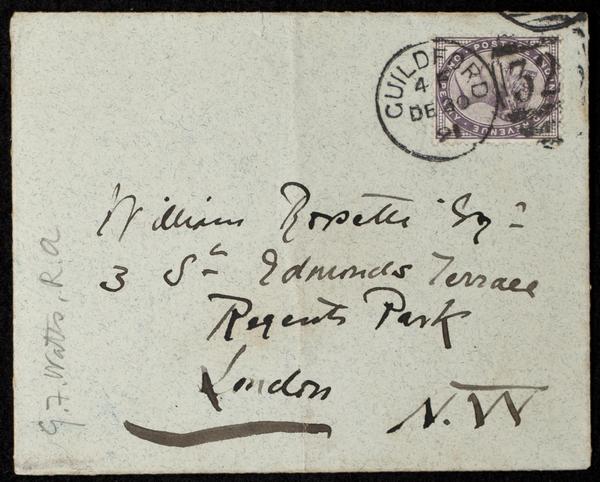 GUILDFORD
DE
91
POSTAGE AND INLAND REVENUE
William Rossetti Esqre
3 St Edmonds Terrace
Regents Park
London
N.W
G.F. Watts, R.A